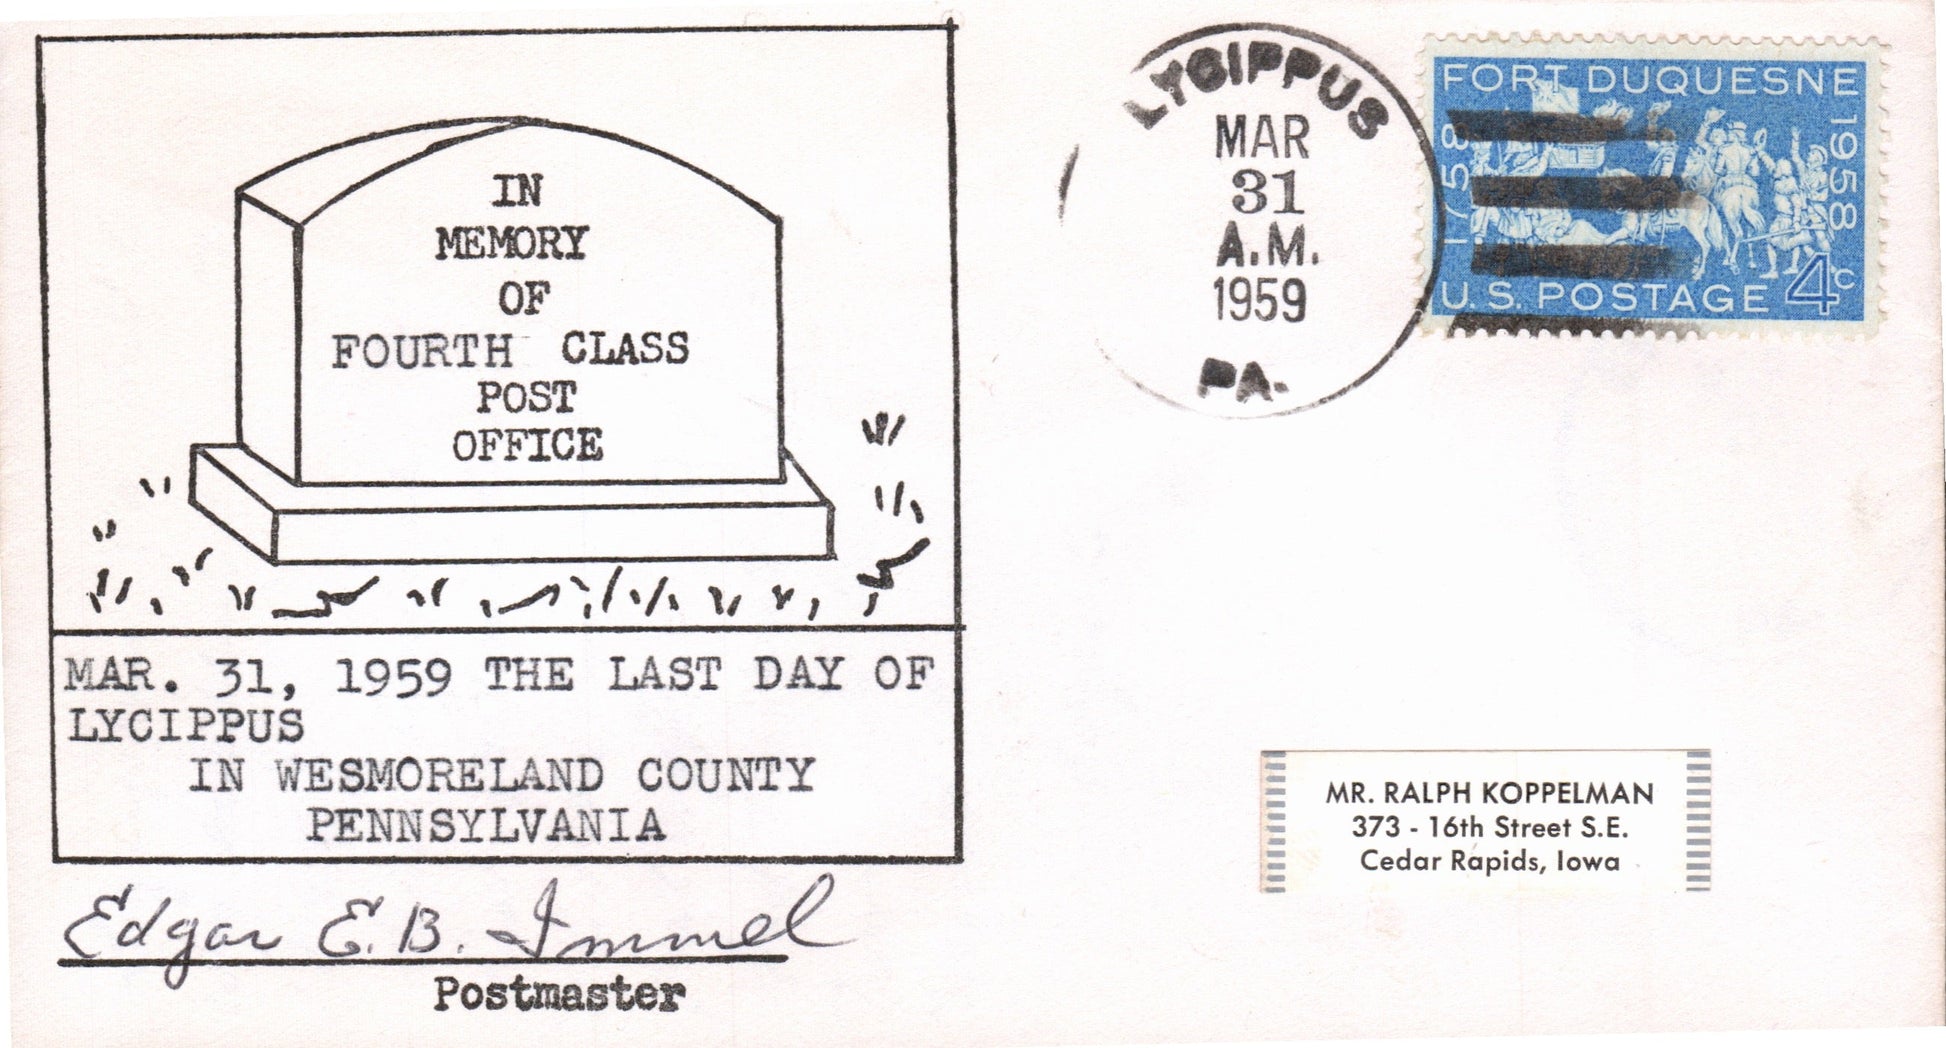 IN
MEMORY
OF
FOURTH CLASS
POST
OFFICE
MAR. 31, 1959 THE LAST DAY OF
LYCIPPUS
IN WESMORELAND COUNTY
PENNSYLVANIA
Edgar E. B. Immel
Postmaster
LYCIPPUS
MAR
31
A.M.
1959
PA.
FORT DUQUESNE
1758
1958
U.S. POSTAGE 4c
MR. RALPH KOPPELMAN
373 - 16th Street S.E.
Cedar Rapids, Iowa